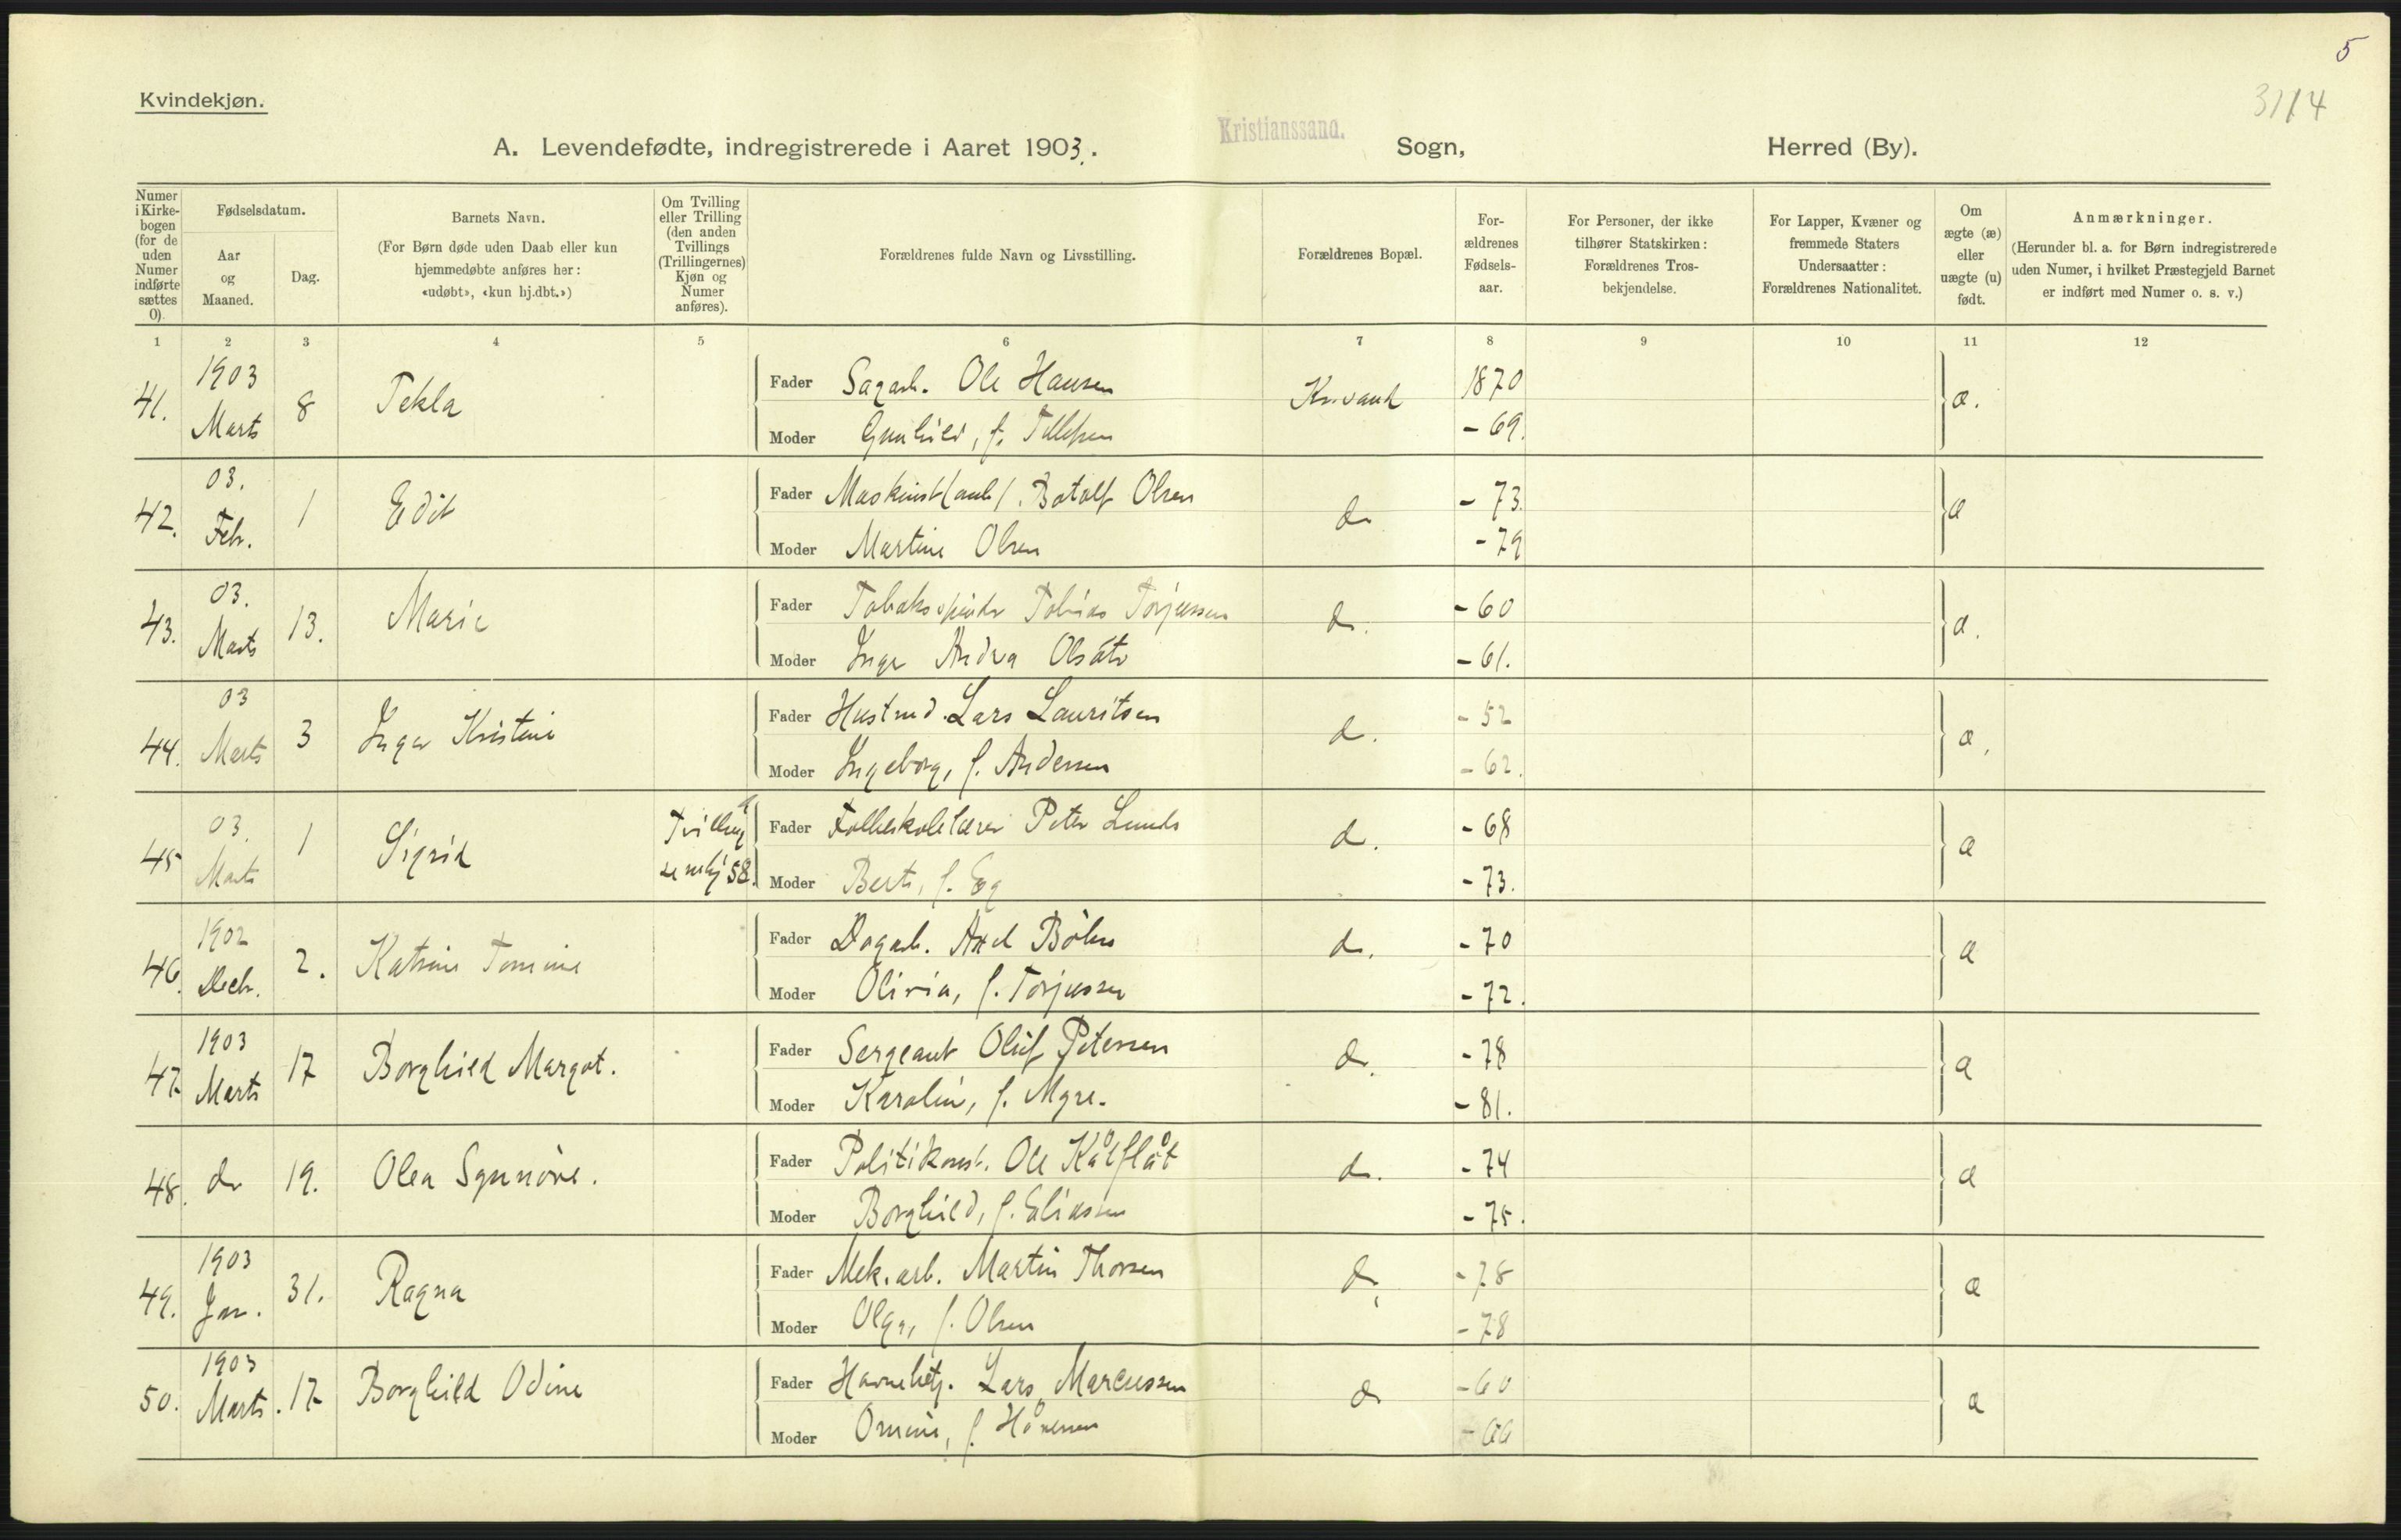 5
3114
Kvindekjøn.
Kristianssand.
A. Levendefødte, indregistrerede i Aaret 1903. Sogn, Herred (By).
Numer i Kirkebogen (for de uden Numer indførte sættes 0).
Fødselsdatum.
Aar og Maaned.
Dag.
Barnets Navn.
(For Børn døde uden Daab eller kun hjemmedøbte anføres her: «udøbt», «kun hj.dbt.»)
Om Tvilling eller Trilling (den anden Tvillings (Trillingernes) Kjøn og Numer anføres).
Forældrenes fulde Navn og Livsstilling.
Forældrenes Bopæl.
Forældrenes Fødselsaar.
For Personer, der ikke tilhører Statskirken: Forældrenes Trosbekjendelse.
For Lapper, Kvæner og fremmede Staters Undersaatter: Forældrenes Nationalitet.
Om ægte (æ) eller uægte (u) født.
Anmærkninger.
(Herunder bl. a. for Børn indregistrerede uden Numer, i hvilket Præstegjeld Barnet er indført med Numer o. s. v.)
1 2 3 4 5 6 7 8 9 10 11 12
41. 1903 Marts 8 Tekla Fader Sagarb. Ole Hansen Kr.sand 1870 æ.
Moder Gunhild, f. Tellefsen - 69.
42. 03. Feb. 1 Edit Fader Botolf Olsen do - 73. æ
Moder Martine Olsen - 79
43. 03. Marts 13. Marie Fader Tobaksspinder Tobias Torjussen do. - 60 æ.
Moder Inger Andrea - 61.
44. 03 Marts 3 Inga Kristine Fader Lars Lauritsen do. - 52 æ.
Moder Ingeborg, f. Andersen - 62.
45 03. Marts 1 Sigrid Tvilling Fader Folkeskolelærer Peter Lunde do. - 68 æ
58. Moder Berte, f. Eg - 73.
46. 1902 Decbr. 2. Katrine Tomine Fader Dagarb. Axel do. - 70 æ
Moder Olivia, f. Torjussen - 72.
47. 1903 Marts 17 Borghild Margot. Fader Sergeant Oluf Petersen do. - 78 æ
Moder Karoline, f. Myre. - 81.
48. do 19. Olea Synnöve. Fader Politikonst. Ole Kålflåt do. - 74 æ
Moder Borghild, f. Eliassen - 75.
49. 1903 Jan. 31. Ragna Fader Mek. arb. Martin Thorsen do. - 78 æ
Moder Olga, f. Olsen - 78
50. 1903 Marts. 17 Borghild Odine Fader Havnebetj. Lars Marcussen do - 60 æ
Moder f. - 66